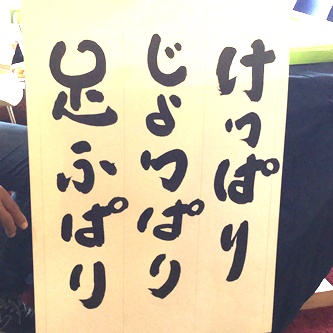 けっぱり
じょっぱり
足ふぱり